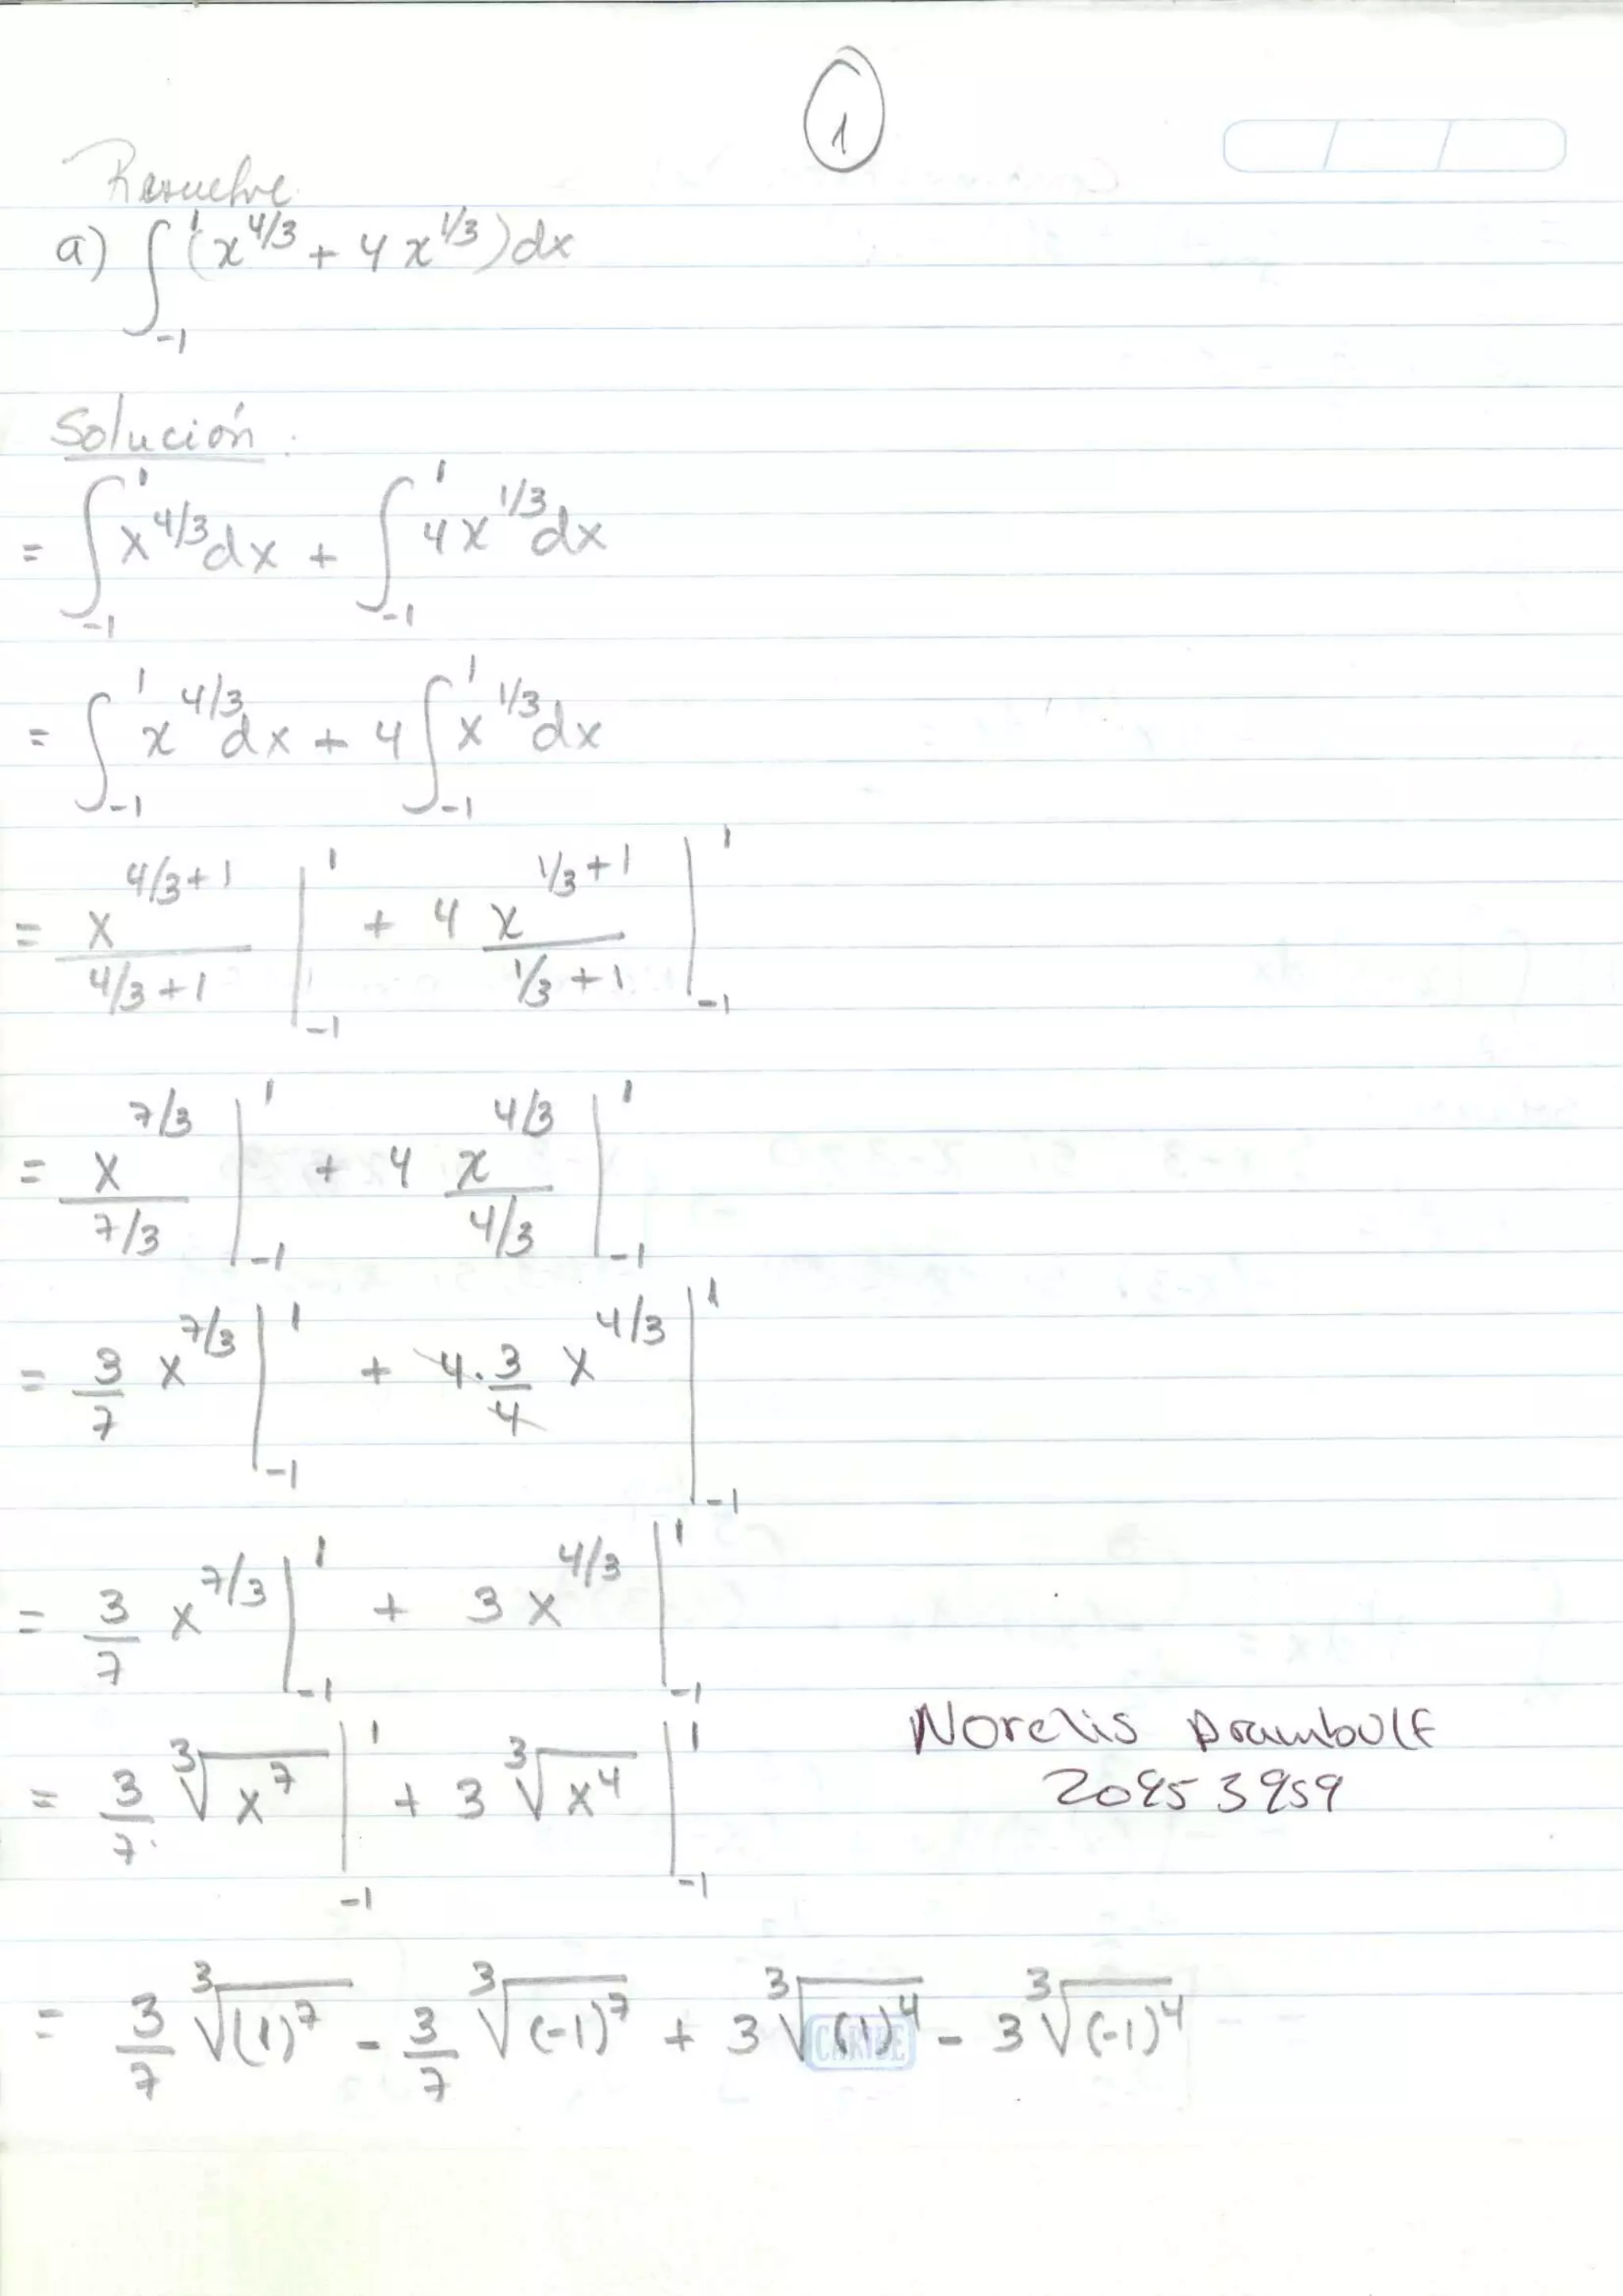 1
Resuelve
a) ∫₋₁¹ (x^{4/3} + 4x^{1/3})dx
Solución:
= ∫₋₁¹ x^{4/3}dx + ∫₋₁¹ 4x^{1/3}dx
= ∫₋₁¹ x^{4/3}dx + 4∫₋₁¹ x^{1/3}dx
= x^{4/3+1}/(4/3+1) |₋₁¹ + 4 x^{1/3+1}/(1/3+1) |₋₁¹
= x^{7/3}/(7/3) |₋₁¹ + 4 x^{4/3}/(4/3) |₋₁¹
= 3/7 x^{7/3} |₋₁¹ + 4·3/4 x^{4/3} |₋₁¹
= 3/7 x^{7/3} |₋₁¹ + 3x^{4/3} |₋₁¹
= 3/7 ∛(x^7) |₋₁¹ + 3 ∛(x^4) |₋₁¹
Norelis
= 3/7 ∛((1)^7) - 3/7 ∛((-1)^7) + 3 ∛((1)^4) - 3 ∛((-1)^4)
CARIBE